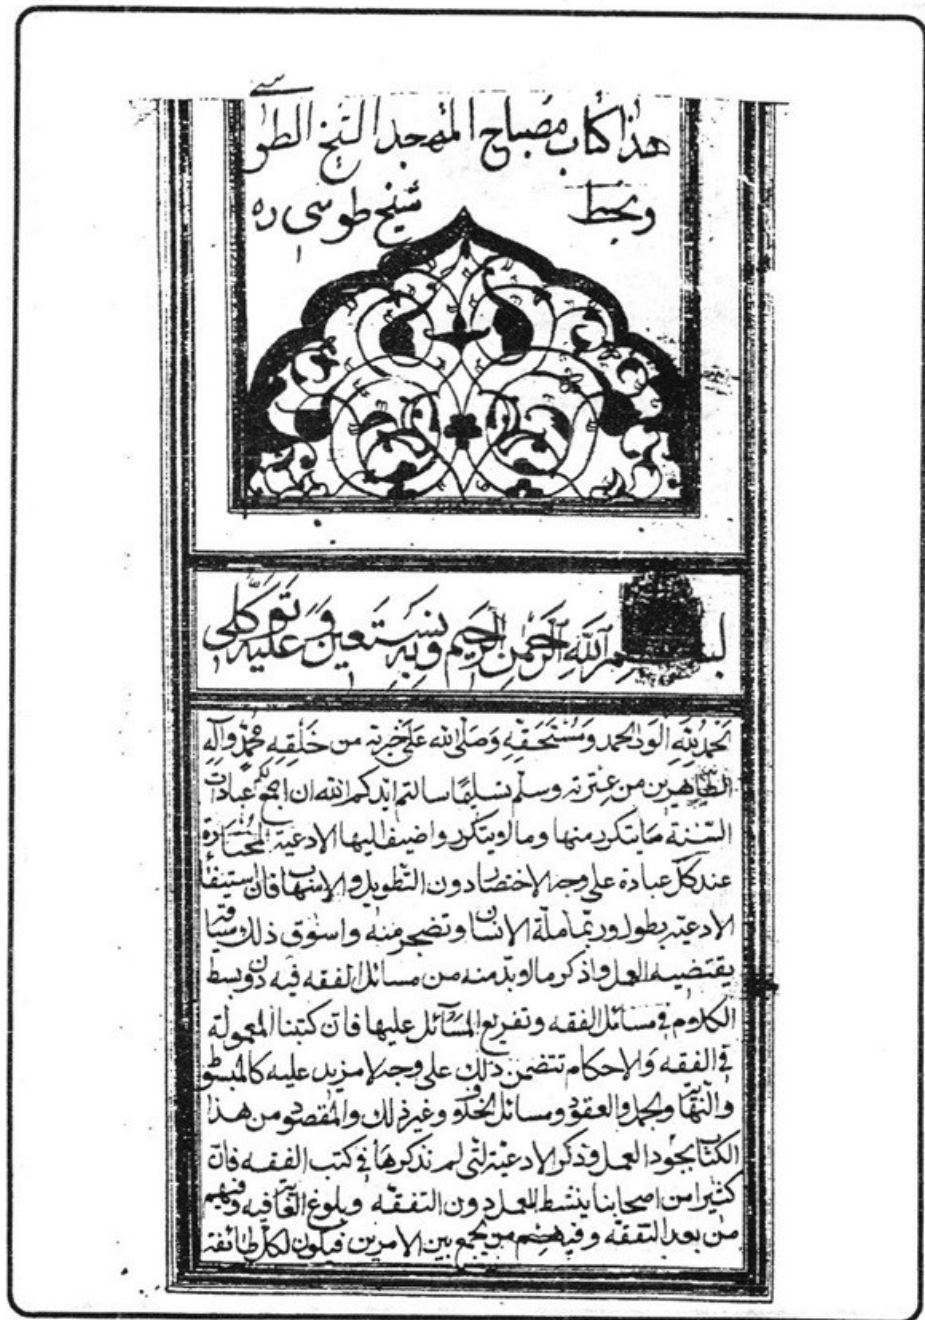 هذا كتاب مصباح المتهجد الشيخ الطوسي
وبخط شيخ طوسي ره
بسم الله الرحمن الرحيم وبه نستعين وعليه توكلي
الحمد لله الحمد ومستحقه وصلى الله على خيرته من خلقه محمد وآله
الطاهرين من عترته وسلم تسليما سالتم ايدكم الله ان اجمع لكم عبادات
السنة ما يتكرر منها وما لا يتكرر واضيف اليها الادعية المختارة
عند كل عبادة على وجه الاختصار دون التطويل والاسهاب فان استيفاء
الادعية يطول وربما مله الانسان وتضجر منه واسوق ذلك سياقة
يقتضيه العمل واذكر ما لا بد منه من مسائل الفقه فيه دون بسط
الكلام في مسائل الفقه وتفريع المسائل عليها فان كتبنا المعمولة
في الفقه والاحكام تتضمن ذلك على وجه لا مزيد عليه كالمبسوط
والنهاية والجمل والعقود ومسائل الخلاف وغير ذلك والمقصود من هذا
الكتاب مجرد العمل وذكر الادعية التي لم نذكرها في كتب الفقه فان
كثيرا من اصحابنا ينشط للعمل دون التفقه وبلوغ الغاية فيه وفيهم
من يعد التفقه وفيهم من يجمع بين الامرين فيكون لكل طائفة